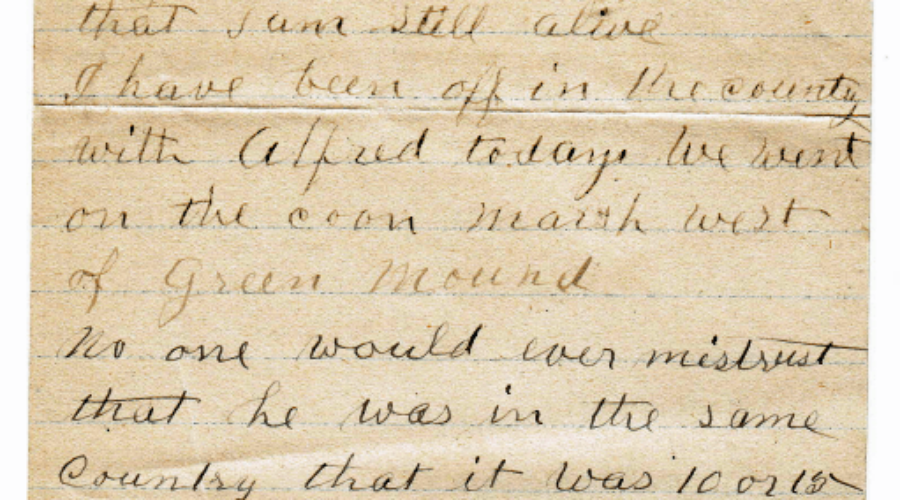 that I am still alive
I have been off in the county
with Alfred today We went
on the coon marsh west
of Green Mound
No one would ever mistrust
that he was in the same
Country that it was 10 or 15